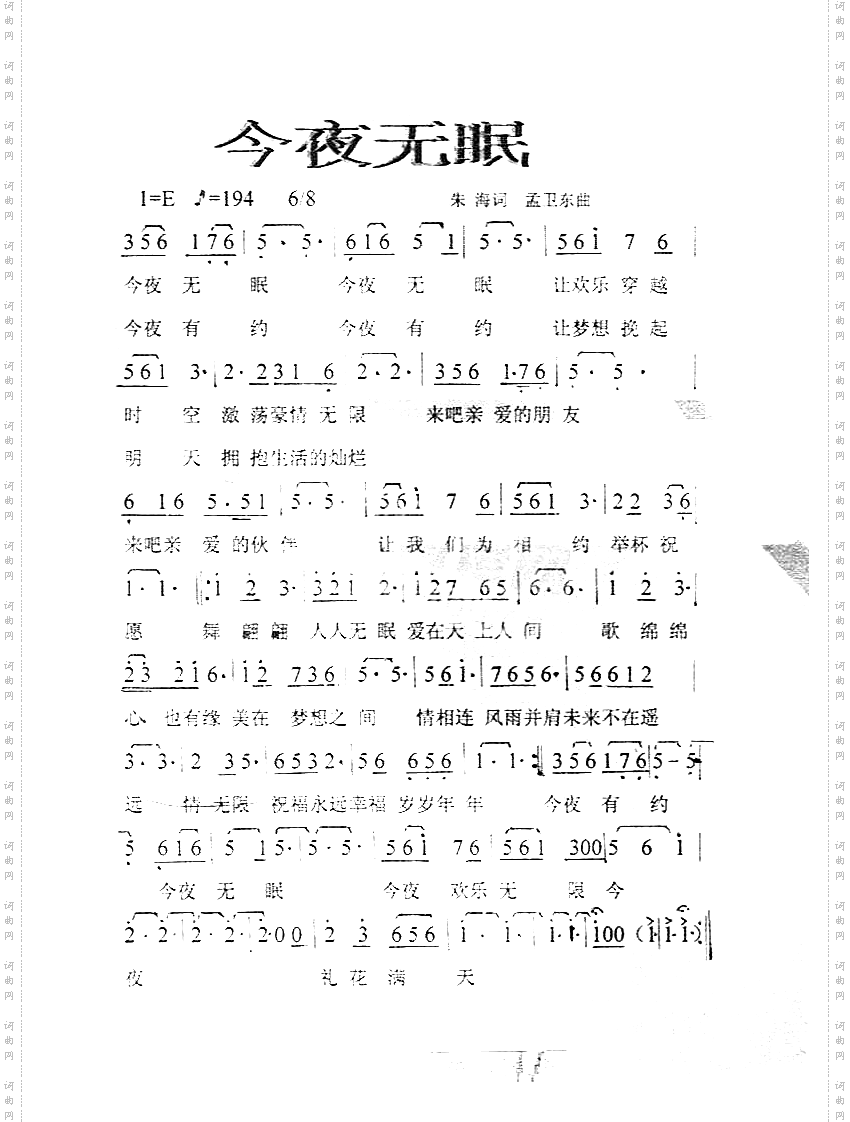 今夜无眠
1=E ♪=194 6/8 朱 海词 孟卫东曲
356 176 | 5· 5· | 616 5 1 | 5· 5· | 561 7 6 |
今夜 无 眠 今夜 无 眠 让欢乐 穿 越
今夜 有 约 今夜 有 约 让梦想 挽 起
561 3· | 2· 231 6 | 2· 2· | 356 1·76 | 5· 5· |
时 空 激 荡豪情 无 限 来吧亲 爱的朋 友
明 天 拥 抱生活的灿烂
6 16 5·51 | 5· 5· | 561 7 6 | 561 3· | 22 36 |
来吧亲 爱 的伙 伴 让 我 们 为 相 约 举杯 祝
1· 1· |: 1 2 3· | 321 2· | 127 65 | 6· 6· | 1 2 3· |
愿 舞 翩 翩 人人无 眠 爱在天 上人 间 歌 绵 绵
23 216· | 12 736 | 5· 5· | 561· | 7656· | 56612 |
心 也有缘 美在 梦想之 间 情相连 风雨并肩未来不在遥
3· 3· | 2 35· | 6532· | 56 656 | 1· 1· :| 356 176 | 5 – 5· |
远 情 无限 祝福永远幸福 岁岁年 年 今夜 有 约
5 616 | 5 15· | 5· 5· | 561 76 | 561 300 | 5 6 1 |
今夜 无 眠 今夜 欢乐 无 限 今
2· 2· | 2· 2· | 2·00 | 2 3 656 | 1· 1· | 1· 1· | 100 (1· | 1· 1·) ||
夜 礼 花 满 天
词曲网